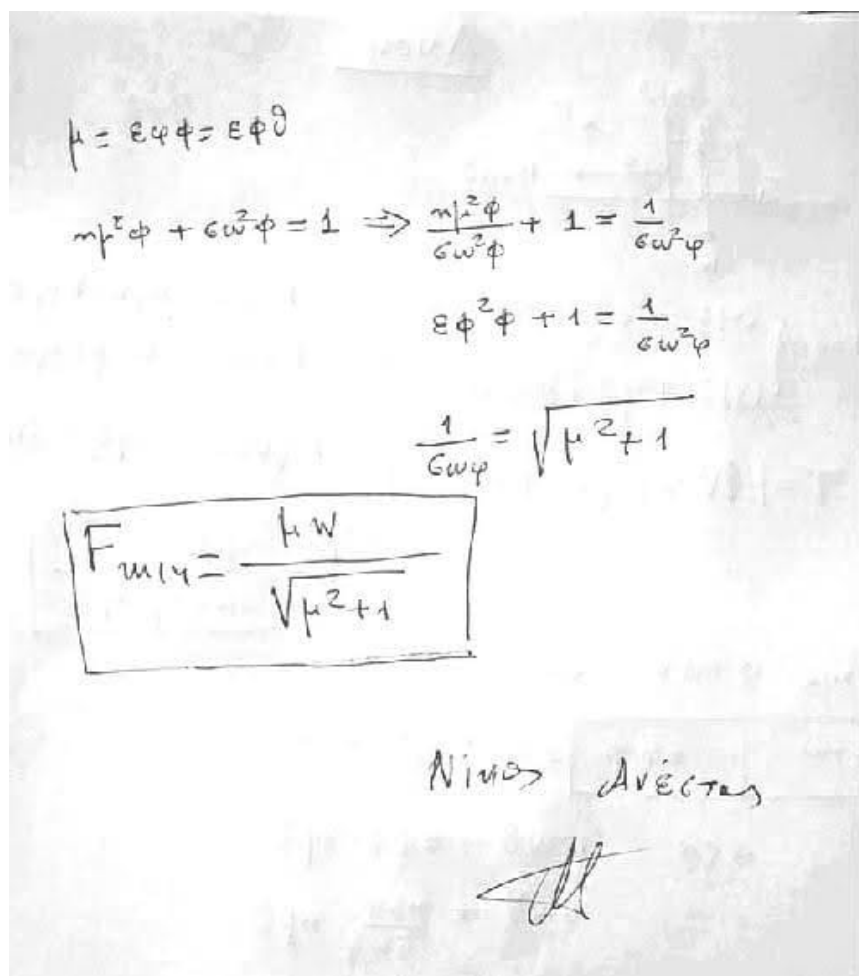 μ = εφφ = εφθ
ημ²φ + συν²φ = 1 ⇒ ημ²φ/συν²φ + 1 = 1/συν²φ
εφ²φ + 1 = 1/συν²φ
1/συνφ = √(μ²+1)
Fmin = μw/√(μ²+1)
Νίκος Ανέστης